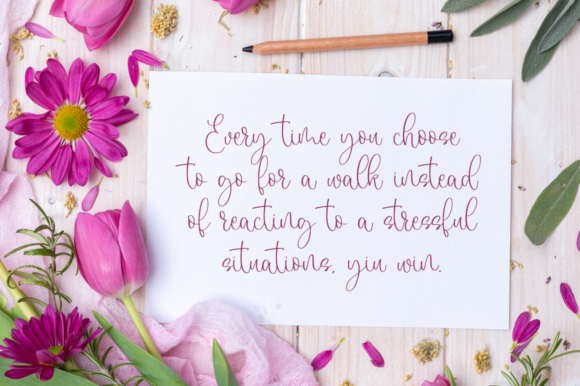 Every time you choose
to go for a walk instead
of reacting to a stressful
situations, yiu win.